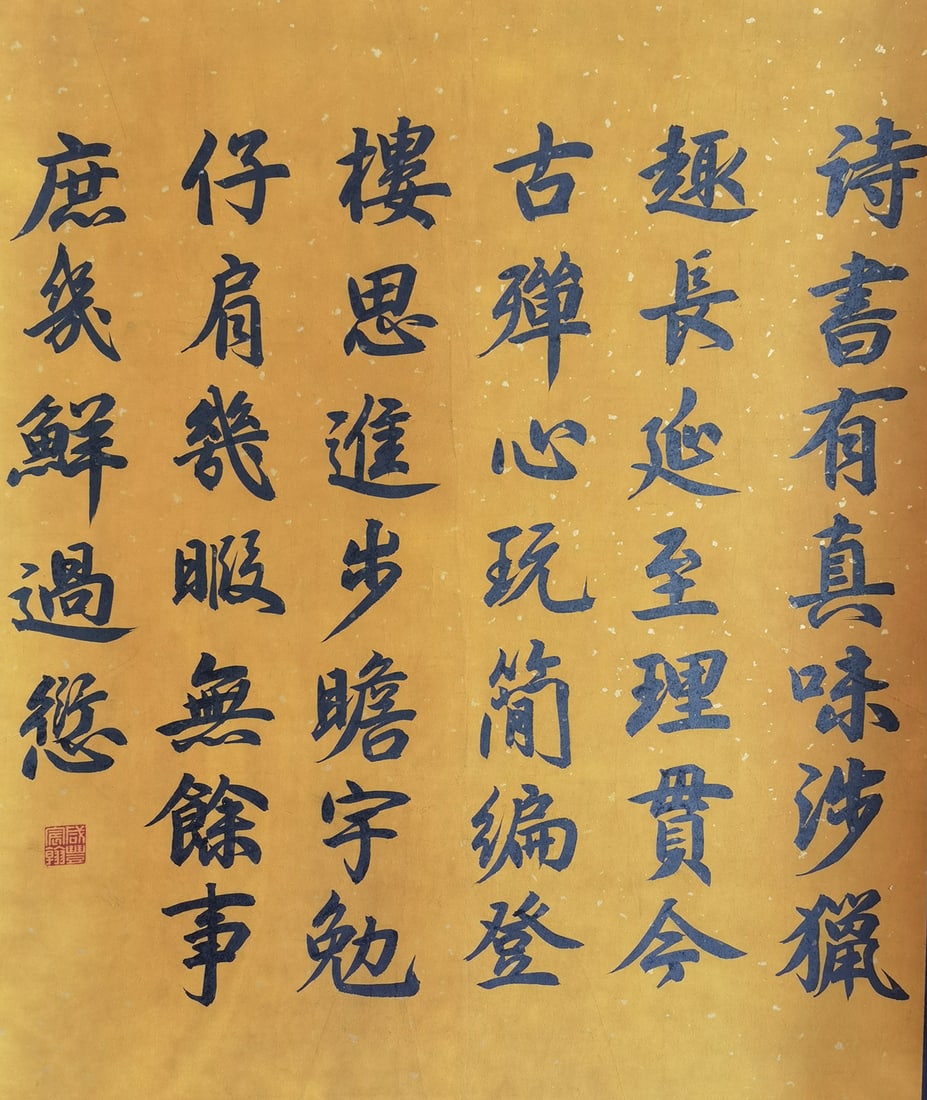 詩書有真味涉獵
趣長延至理貫今
古殫心玩簡編登
樓思進步瞻宇勉
仔肩幾暇無餘事
庶幾鮮過愆
咸豐宸翰